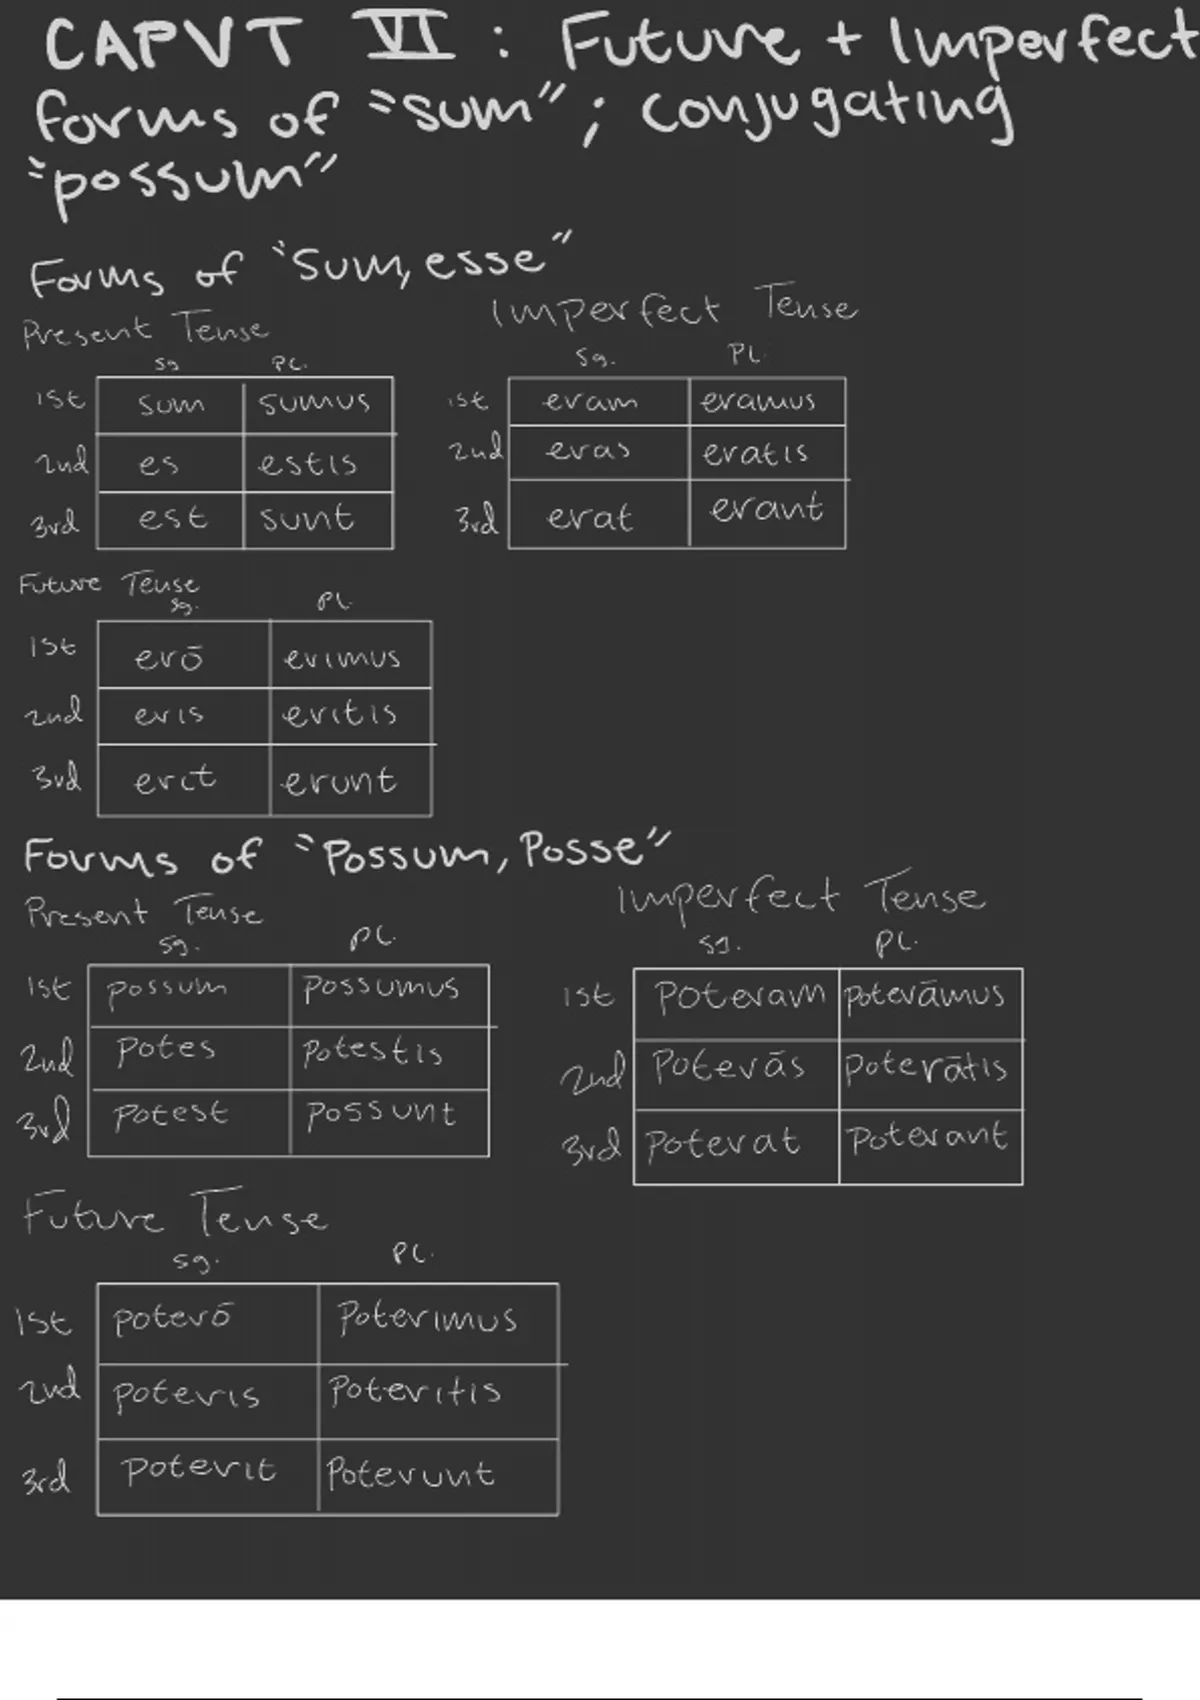 CAPVT VI : Future + Imperfect
forms of "sum" ; conjugating
"possum"
Forms of "Sum, esse"
Present Tense
sg pl.
1st sum sumus
2nd es estis
3rd est sunt
Imperfect Tense
sg. PL.
1st eram eramus
2nd eras eratis
3rd erat erant
Future Tense
sg. pl.
1st erō erimus
2nd eris eritis
3rd erit erunt
Forms of "Possum, Posse"
Present Tense
sg. pl.
1st possum possumus
2nd potes potestis
3rd potest possunt
Imperfect Tense
sg. pl.
1st poteram poterāmus
2nd poterās poterātis
3rd poterat poterant
Future Tense
sg. pl.
1st poterō poterimus
2nd poteris poteritis
3rd poterit poterunt